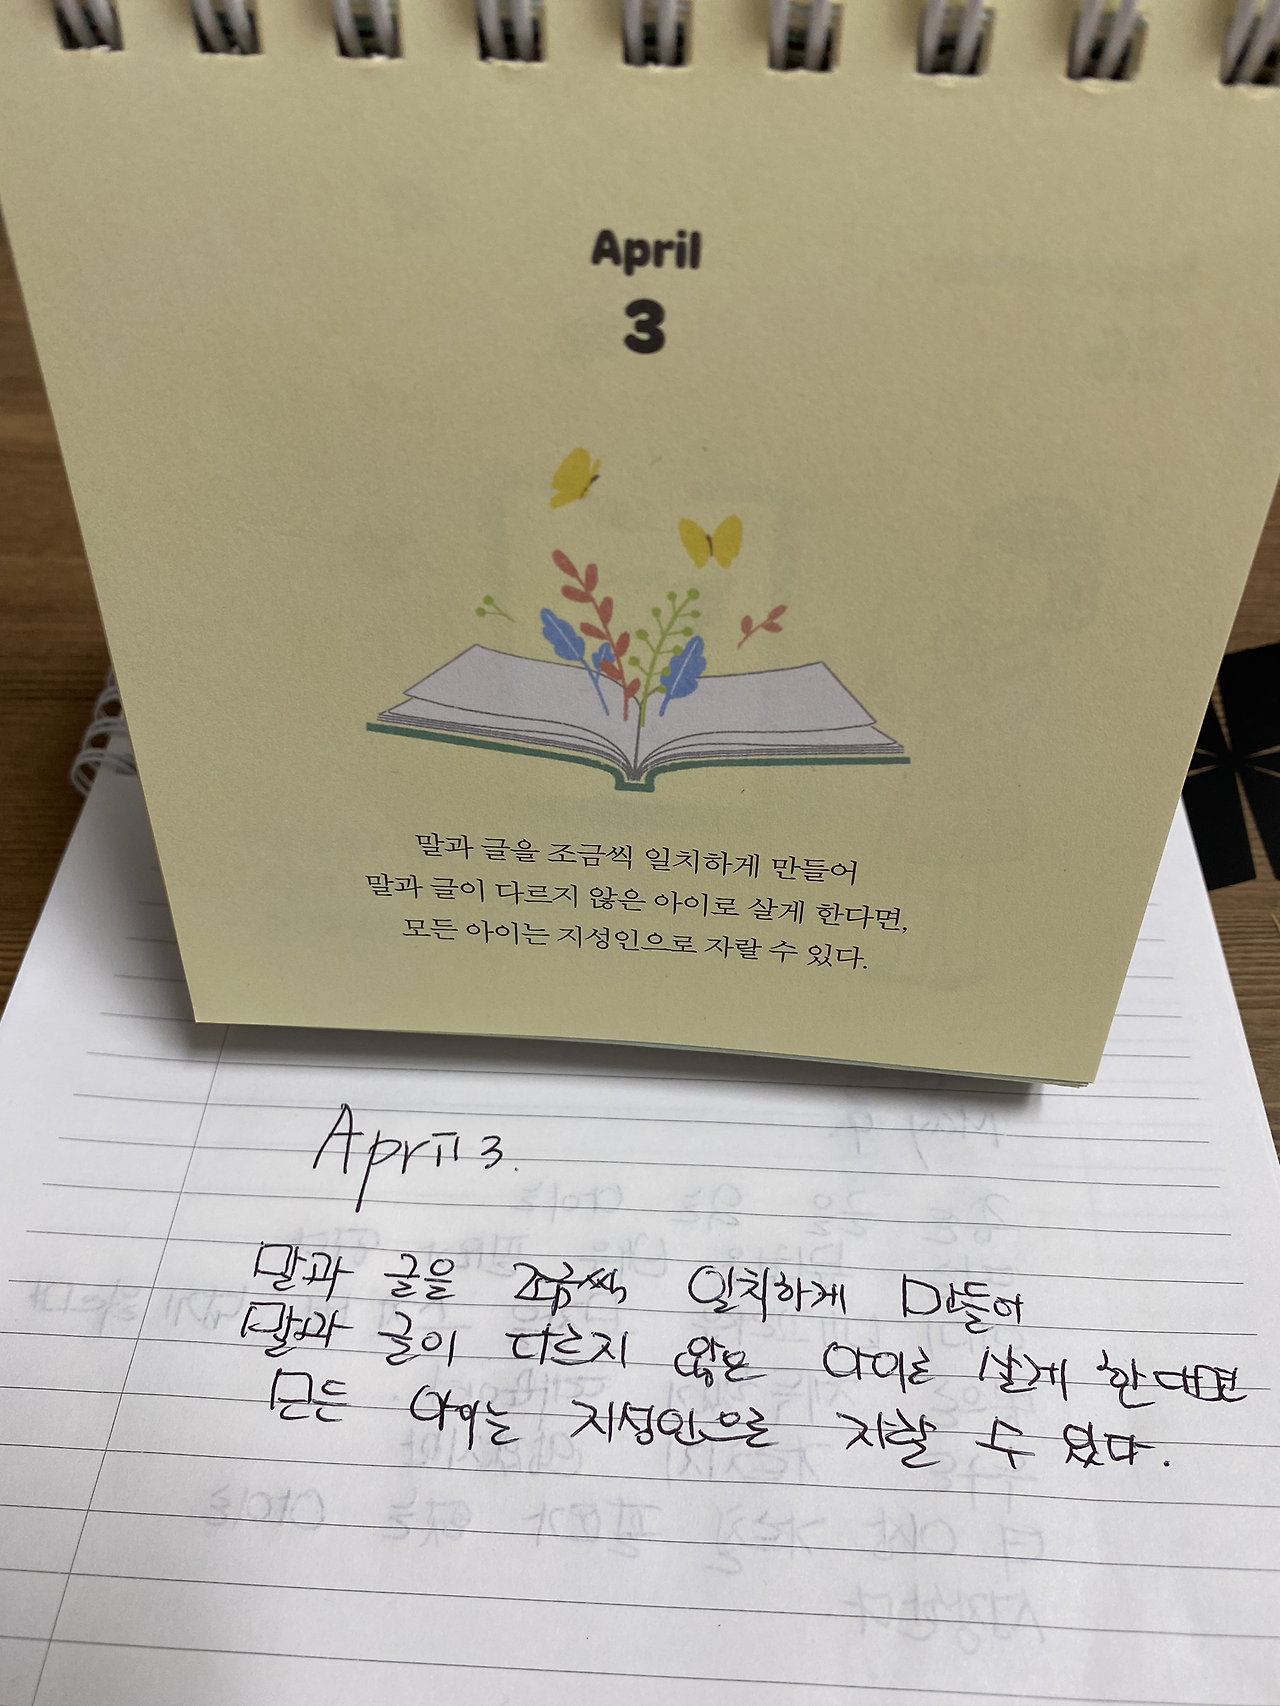 April
3
말과 글을 조금씩 일치하게 만들어
말과 글이 다르지 않은 아이로 살게 한다면,
모든 아이는 지성인으로 자랄 수 있다.
April 3.
말과 글을 조금씩 일치하게 만들어
말과 글이 다르지 않은 아이로 살게 한다면
모든 아이는 지성인으로 자랄 수 있다.